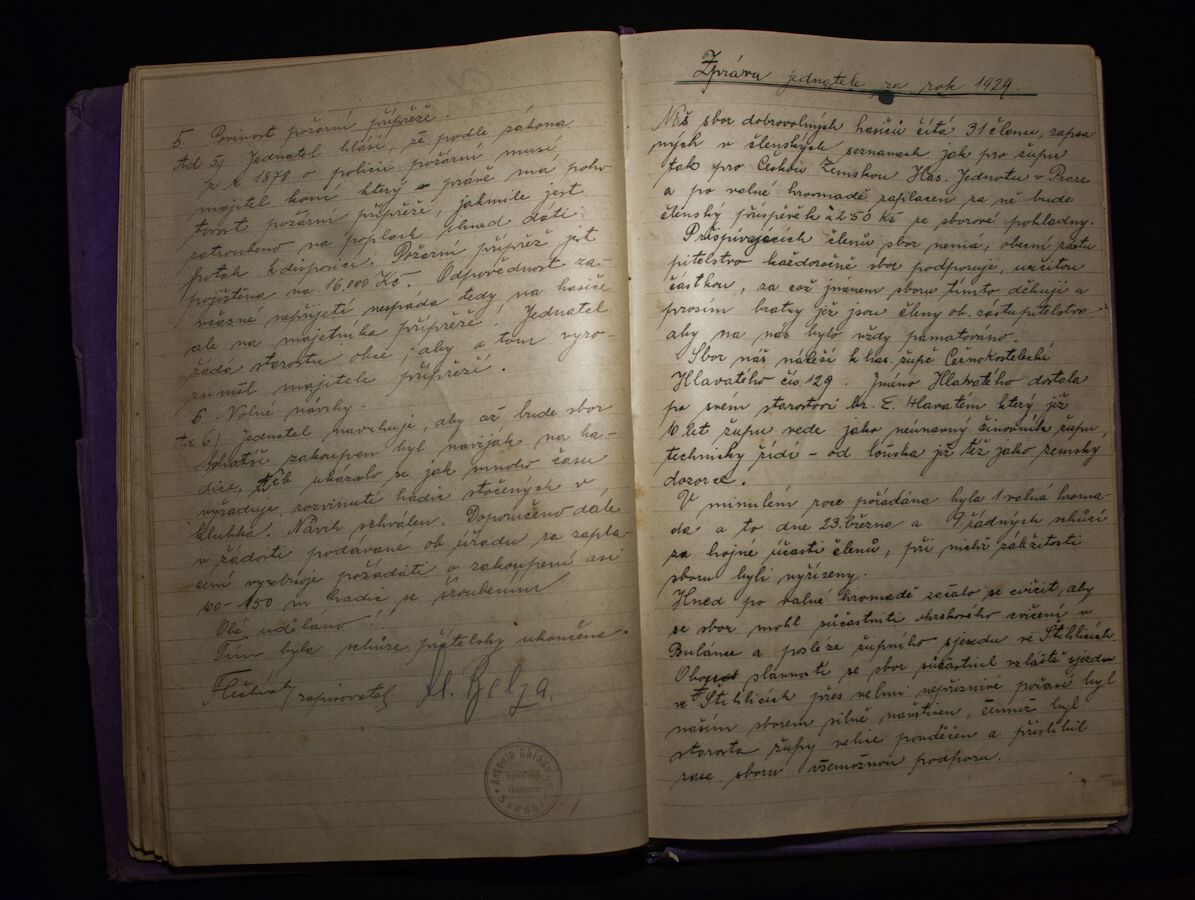 5. Povinost požární přípřeže.
Ad 5) Jednatel hlásí, že podle zákona
z r. 1878 o policii požární musí
majitel koní který právě má poho-
tovost požární přípřeže, jakmile jest
zatroubeno na poplach ihned dáti
potah k disposici. Požární přípřež jest
pojištěna na 16.000 Kč. Odpovědnost za
včasné nepřijetí nespadá tedy na hasiče
ale na majetníka přípřeže! Jednatel
žádá starostu obce, aby o tom vyro-
zuměl majitele přípřeží.
6. Volné návrhy.
Ad 6) Jednatel navrhuje, aby až bude sbor
bohatší zakoupen byl naviják na ha-
dice, ukázalo se jak mnoho času
vyžaduje rozvinutí hadic stočených v
klubka. Návrh schválen. Doporučeno dále
v žádosti podávané ob. úřadu za zapla-
cení výzbroje požádati o zakoupení asi
100-150 m hadic se šroubením
Obé uděláno!
Tím byla schůze přátelsky ukončena.
zapisovatel
Antonín
hasičský
dozorce
Zpráva jednatele za rok 1929.
Náš sbor dobrovolných hasičů čítá 31 členu, zapsa
ných v členských seznamech jak pro župu
tak pro Českou Zemskou Has. Jednotu v Praze
a po valné hromadě zaplacen za ně bude
členský příspěvěk à 2·50 Kč ze sborové pokladny.
Přispívajících členů sbor nemá, obecní zastu
pitelstvo každoročně sbor podporuje, určitou
částkou, za což jménem sboru tímto děkuji a
prosím bratry již jsou členy ob. zastupitelstva
aby na nás bylo vždy pamatováno.
Sbor náš náleží k has. župě Černokostelecké
Hlavatého čís. 129. Jméno Hlavatého dostala
po svém starostovi br. E. Hlavatém který již
10 let župu vede jako neúnavný činovník župu,
technicky řídí – od loňska již též jako zemský
dozorce.
V minulém roce pořádána byla 1 valná hroma-
da a to dne 23. března a 9 řádných schůzí
za hojné účasti členů, při nichž záležitosti
sboru byli vyřízeny.
Hned po valné hromadě začalo se cvičit, aby
se sbor mohl súčastniti okrskového cvičení v
Bulánce a posléze župního sjezdu ve Štihlicích.
Obou slavností se sbor súčastnil zvláště sjezdu
ve Štihlicích přes velmi nepříznivé počasí byl
naším sborem silně navštíven, čemuž byl
starosta župy velice povděčen a přislíbil
zase sboru všemožnou podporu.